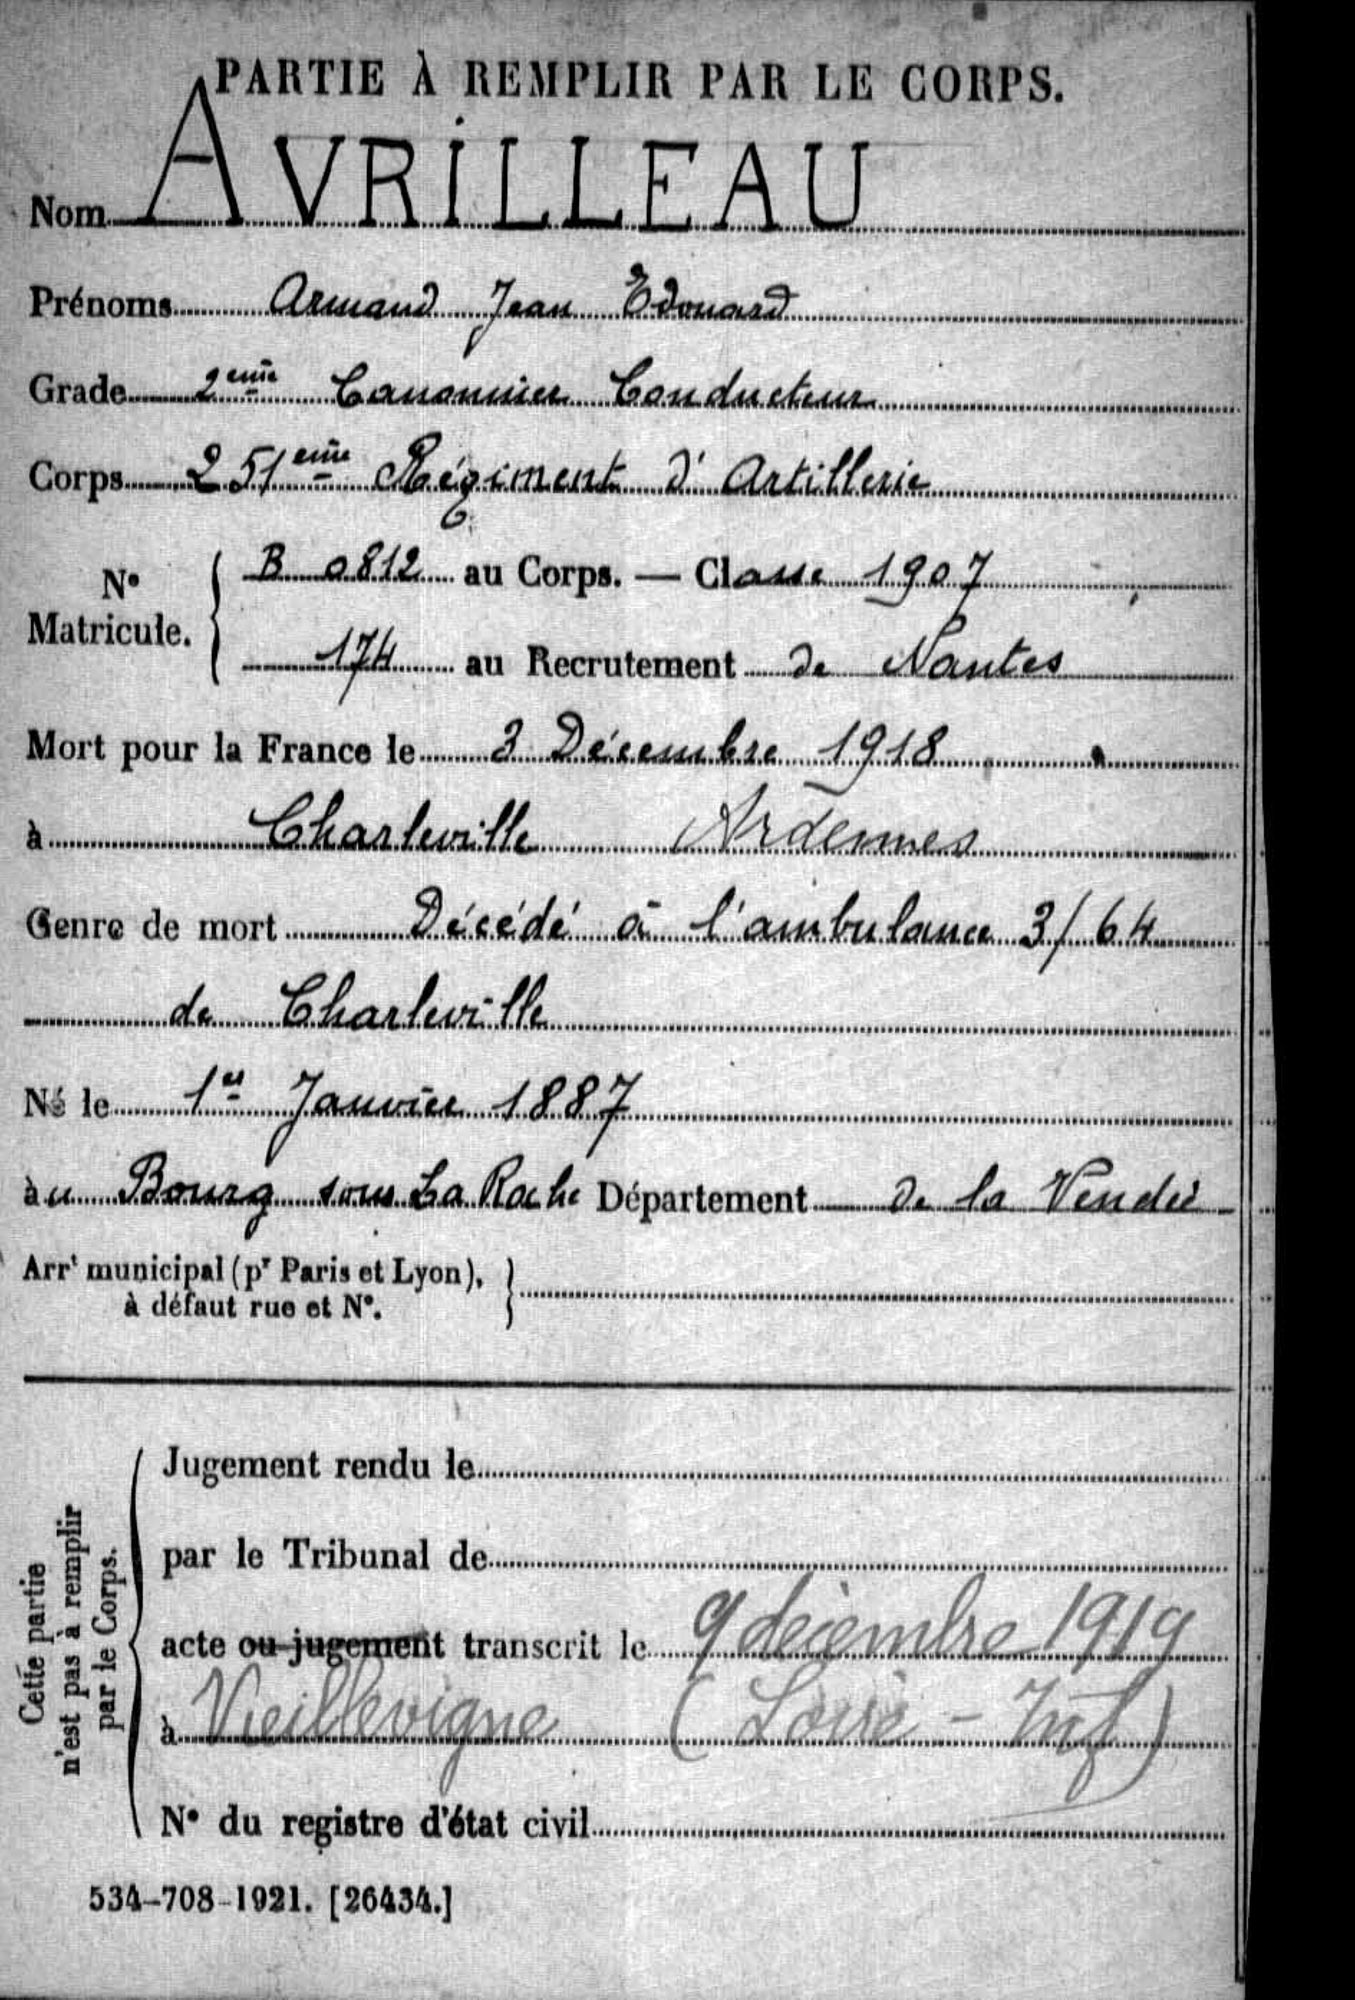 PARTIE À REMPLIR PAR LE CORPS.
Nom AVRILLEAU
Prénoms Armand Jean Edouard
Grade 2eme Canonnier Conducteur
Corps 251eme Régiment d'Artillerie
N° Matricule. B 0812 au Corps. — Classe 1907
174 au Recrutement de Nantes
Mort pour la France le 3 Décembre 1918
à Charleville Ardennes
Genre de mort Décédé à l'ambulance 3/64
de Charleville
Né le 1er Janvier 1887
au Bourg sous La Roche Département de la Vendée
Arrt municipal (pr Paris et Lyon),
à défaut rue et N°.
Cette partie
n'est pas à remplir
par le Corps.
Jugement rendu le
par le Tribunal de
acte ou jugement transcrit le 9 décembre 1919
à Vieillevigne (Loire-Inf)
N° du registre d'état civil
534-708-1921. [26434.]